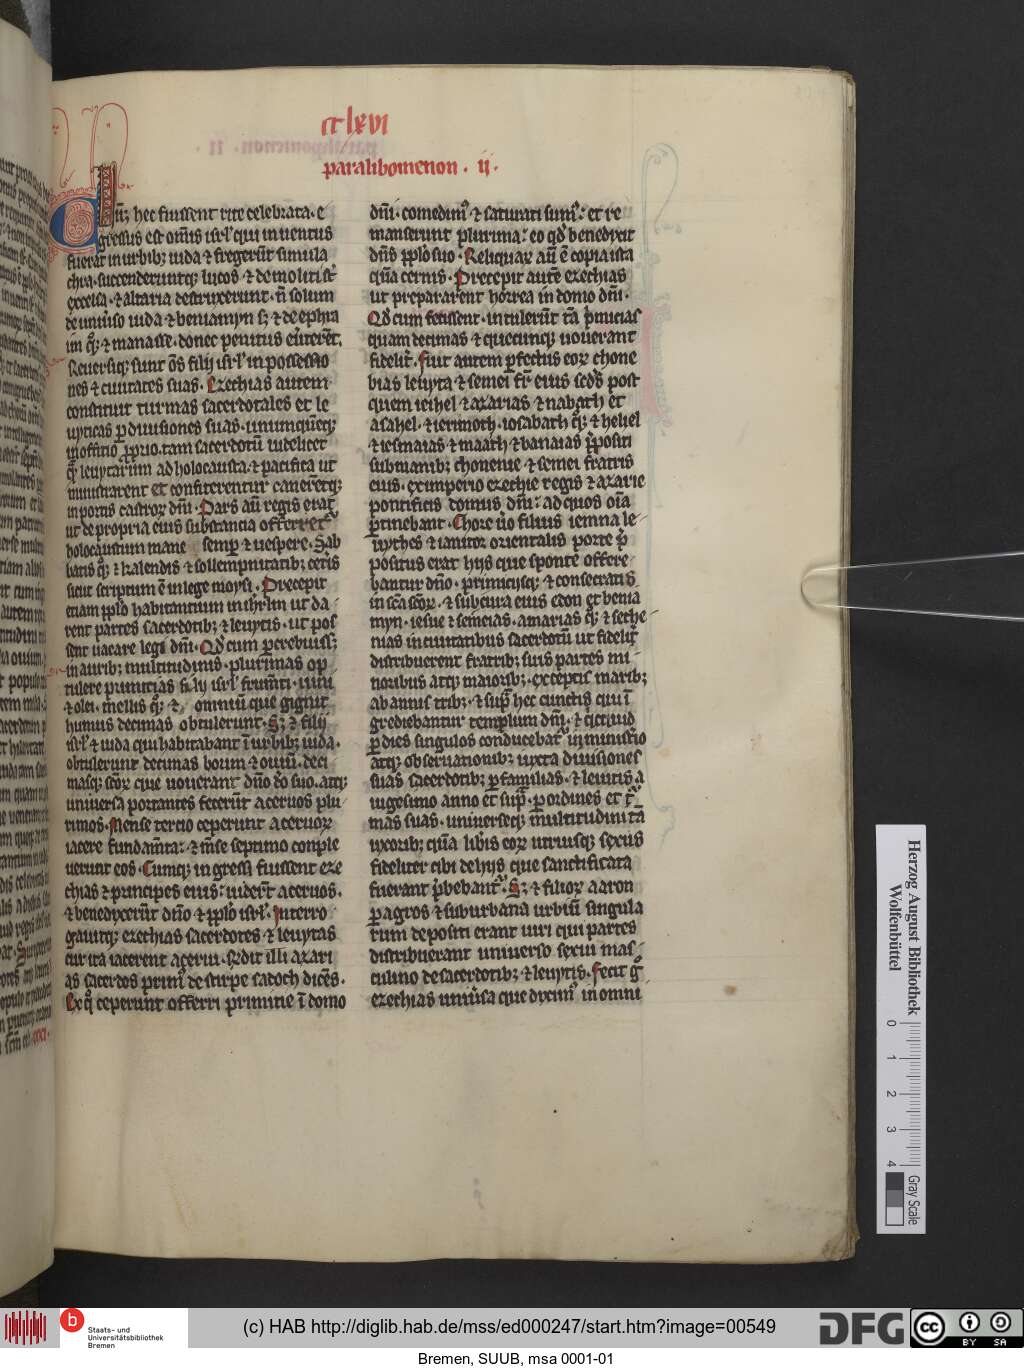 cclxvi
paralibomenon . ii .
Cūq; hec fuissent rite celebrata . e
gressus est om̄is isrl' qui inuentus
fuerat in urbib; iuda & fregerūt simula
chra . succenderuntq; lucos & demoliti st̄
excelsa . & altaria destruxerunt . n̄ solum
de uniu'so iuda & beniamyn s; & de ephra
im q°; & manasse . donec penitus eu'terēt .
Reuersiq; sunt ōs filii isrl' in possessio
nes & ciuitates suas . Ezechias autem
constituit turmas sacerdotales et le
uyticas p diuisiones suas . unūquēq;
in offitio pprio . tam sacerdotū uidelicet
q̄ leuytarum ad holocausta . & pacifica ut
ministrarent et confiterentur canerētq;
in portis castror dn̄i . Pars aū regis erat
ut de propria eius substancia offerret'
holocaustum mane semp & uespere . Sab
batis q°; & kalendis & sollempnitatib; ceteris
sicut scriptum ē in lege moysi . Precepit
etiam pplo habitantium in ihrl'm ut da
rent partes sacerdotib; & leuytis . ut pos
sent uacare legi dn̄i . Qd' cum pcrebuiss;
in aurib; multitudinis . plurimas op
tulere primitias filii isrl' frum̄ti . uini
& olei . mellis q°; & omniū que gignit
humus decimas obtulerunt . S; & filii
isrl' & iuda qui habitabant ī urbib; iuda .
obtulerunt decimas boum & ouiū . deci
masq; scōr que uouerant dn̄o dō suo . atq;
uniuersa portantes fecerūt aceruos plu
rimos . Mense tercio ceperunt aceruor
iacere fundam̄ta : & m̄se septimo conple
uerunt eos . Cumq; ingressi fuissent eze
chias & principes eius : uider̄t aceruos .
& benedyxerūt dn̄o & pplo isrl' . Interro
gauitq; ezechias sacerdotes & leuytas
cur ita iacerent acerui . Rn̄dit illi azari
as sacerdos prim' de stirpe sadoch dicēs .
Ex q° ceperunt offerri primitie ī domo
dn̄i . comedim' & saturati sum' : et re
manserunt plurima : eo qd' benedyxit
dn̄s pplo suo . Reliquar aū ē copia ista
quā cernis . Precepit autē ezechias
ut prepararent horrea in domo dn̄i .
Qd' cum fecissent . intulerūt tā p'micias
quam decimas & quecunq; uouerant
fidelit' . Fuit autem pfectus eor chone
bias leuyta & semei fr̄ eius scds post
quem ieihel & azarias & nabath et
asahel . & ierimoth . iosabath q°; & heliel
& iesmaias & maath & banaias p̄positi
sub manib; chonenie & semei fratris
eius . ex imperio ezechie regis & azarie
pontificis domus dn̄i : ad quos oīa
ptinebant . Chore u'o filius iemna le
uythes & ianitor orientalis porte p̄
positus erat hiis que sponte offere
bantur dn̄o . primiciisq; & consecratis
in scā scōr . & sub cura eius eden et benia
myn . iesue & semeias . amarias q°; & seche
nias in ciuitatibus sacerdotū ut fidelit'
distribuerent fratrib; suis partes mi
noribus atq; maiorib; . exceptis marib;
ab annis trib; . & sup̄ hec cunctis qui ī
grediebantur templum dn̄i . & quicquid
p dies singulos conducebat' in minist'io
atq; obseruationib; iuxta diuisiones
suas sacerdotib; p familias . & leuitis a
uigesimo anno et sup̄ . p ordines et t'
mas suas . uniuerseq; multitudini tā
uxorib; quā lib'is eor utriusq; sexus
fideliter cibi de hiis que sanctificata
fuerant p̄bebant' . S; & filior aaron
p agros & suburbana urbiū singula
rum depositi erant uiri qui partes
distribuerant uniuerso sexui mas
culino de sacerdotib; & leuytis . Fecit g°
ezechias uniu'sa que dixim' in omni
Herzog August Bibliothek
Wolfenbüttel
0 1 2 3 4
Gray Scale
b
Staats- und
Universitätsbibliothek
Bremen
(c) HAB http://diglib.hab.de/mss/ed000247/start.htm?image=00549
DFG
cc
BY SA
Bremen, SUUB, msa 0001-01